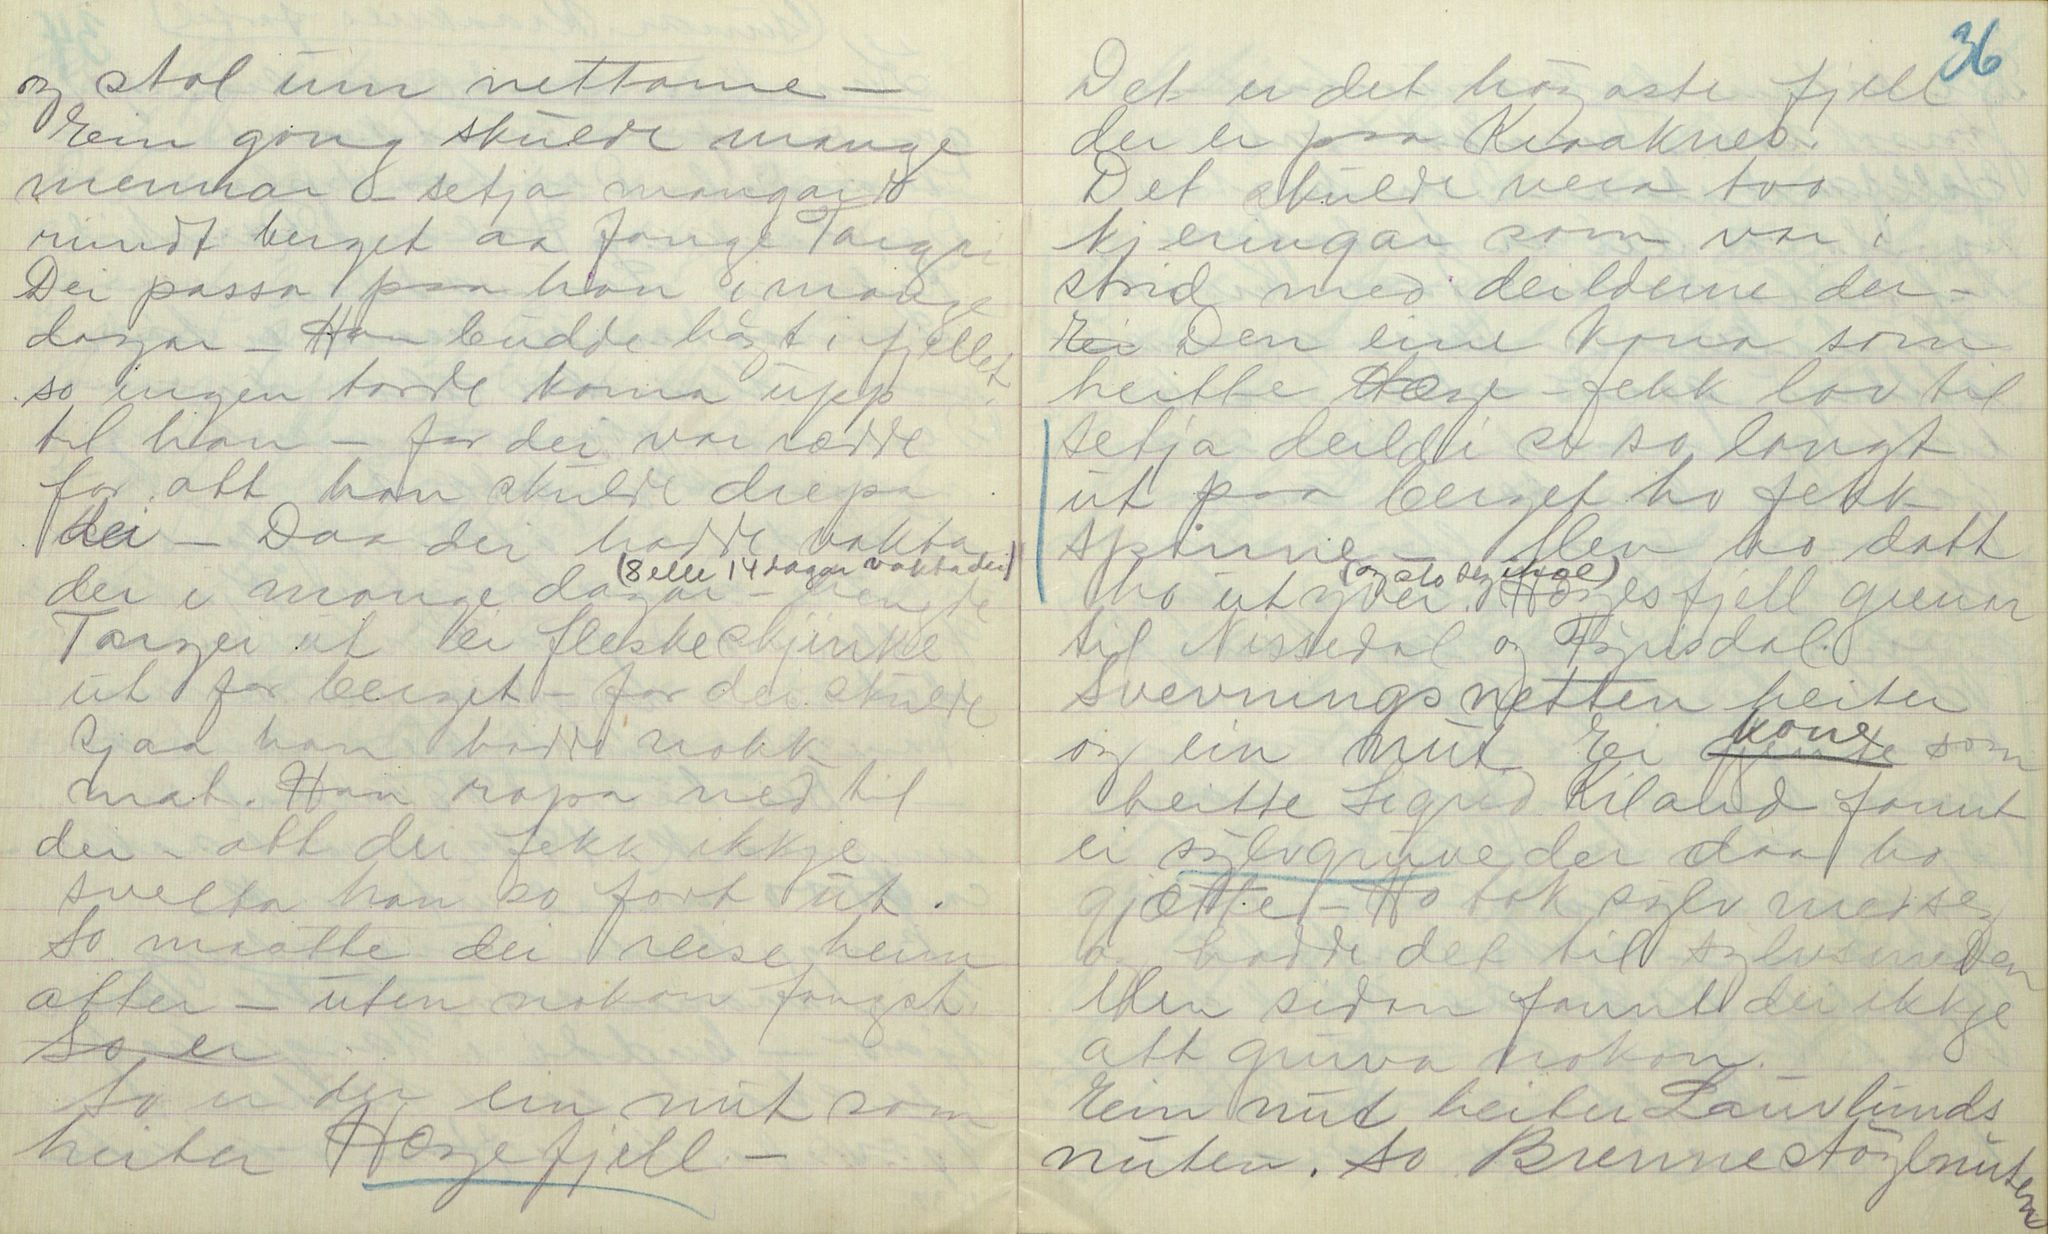 og stal um nettane –
Ein gong skulde mange
mennar – setja mangard
rundt berget aa fange Targei
Dei passa paa han i mange
dagar – Han budde högt i fjellet
so ingen torde koma upp
til han – for dei var rædde
for att han skulde drepa
dei – Daa dei hadde vakta
(8 elle 14 dagar vakta dei)
der i mange dagar – hengde
Targei ut ei fleskeskjinke
ut for berget – for dei skulde
sjaa han hadde nokk
mat. Han ropa ned til
dei – att dei fekk ikkje
svelta han so fort ut.
So maatte dei reise heim
atter – uten nokon fangst.
So er
So er der ein nut som
heiter Hægefjell –
36
Det er det högaste fjell
der er paa Kraaknes.
Det skulde vera two
kjeringar som var i
strid med deilderne der –
Ei Den eine kona som
heitte Hæge – fekk lov til
setja deild i so langt
ut paa berget ho fekk
spinne – Men ho datt
(og slo seg ihæl)
ho utyver. Hægesfjell grenar
til Nissedal og Fyrisdal.
Svevningsnetten heiter
og ein nut. Ei kone som
heitte Sigrid Kiland fannt
ei sylvgruve der daa ho
gjætte – Ho tok sylv med seg
o hadde det til sylvsmeden
Men sidan fannt dei ikkje
att gruva nokon.
Ein nut heiter Lauvlunds
nuten. So Brennestöylnuten